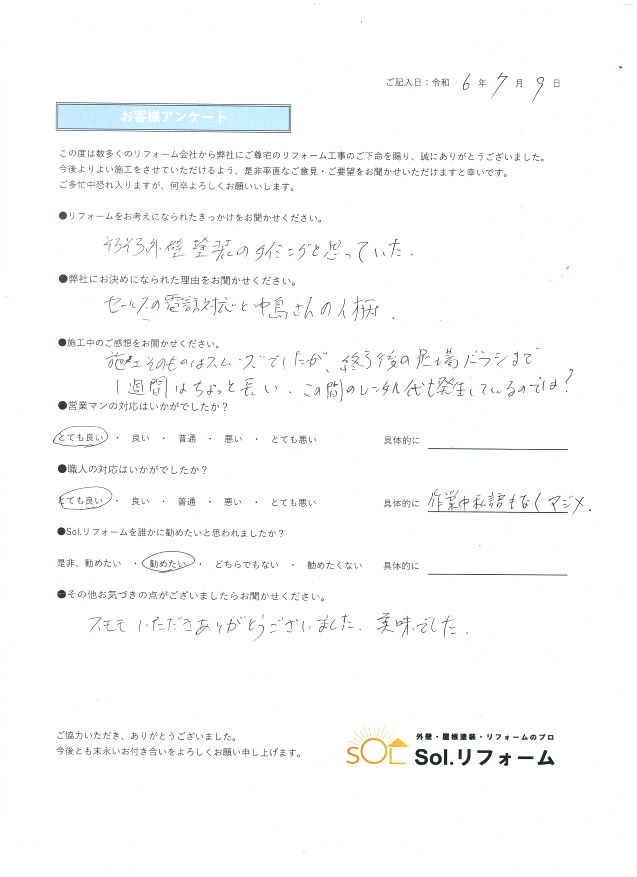 ご記入日：令和 6 年 7 月 9 日
お客様アンケート
この度は数多くのリフォーム会社から弊社にご尊宅のリフォーム工事のご下命を賜り、誠にありがとうございました。
今後よりよい施工をさせていただけるよう、是非率直なご意見・ご要望をお聞かせいただけますと幸いです。
ご多忙中恐れ入りますが、何卒よろしくお願いいします。
●リフォームをお考えになられたきっかけをお聞かせください。
そろそろ外壁塗装のタイミングと思っていた.
●弊社にお決めになられた理由をお聞かせください。
セールスの電話対応と中島さんの人柄.
●施工中のご感想をお聞かせください。
施工そのものはスムーズでしたが、終了後の足場バラシまで
1週間はちょっと長い. この間のレンタル代も発生しているのでは?
●営業マンの対応はいかがでしたか？
とても良い ・ 良い ・ 普通 ・ 悪い ・ とても悪い 具体的に
●職人の対応はいかがでしたか？
とても良い ・ 良い ・ 普通 ・ 悪い ・ とても悪い 具体的に 作業中私語もなくマジメ.
●Sol.リフォームを誰かに勧めたいと思われましたか？
是非、勧めたい ・ 勧めたい ・ どちらでもない ・ 勧めたくない 具体的に
●その他お気づきの点がございましたらお聞かせください。
スモモ いただきありがとうございました. 美味でした.
ご協力いただき、ありがとうございました。
今後とも末永いお付き合いをよろしくお願い申し上げます。
SOL
外壁・屋根塗装・リフォームのプロ
Sol.リフォーム